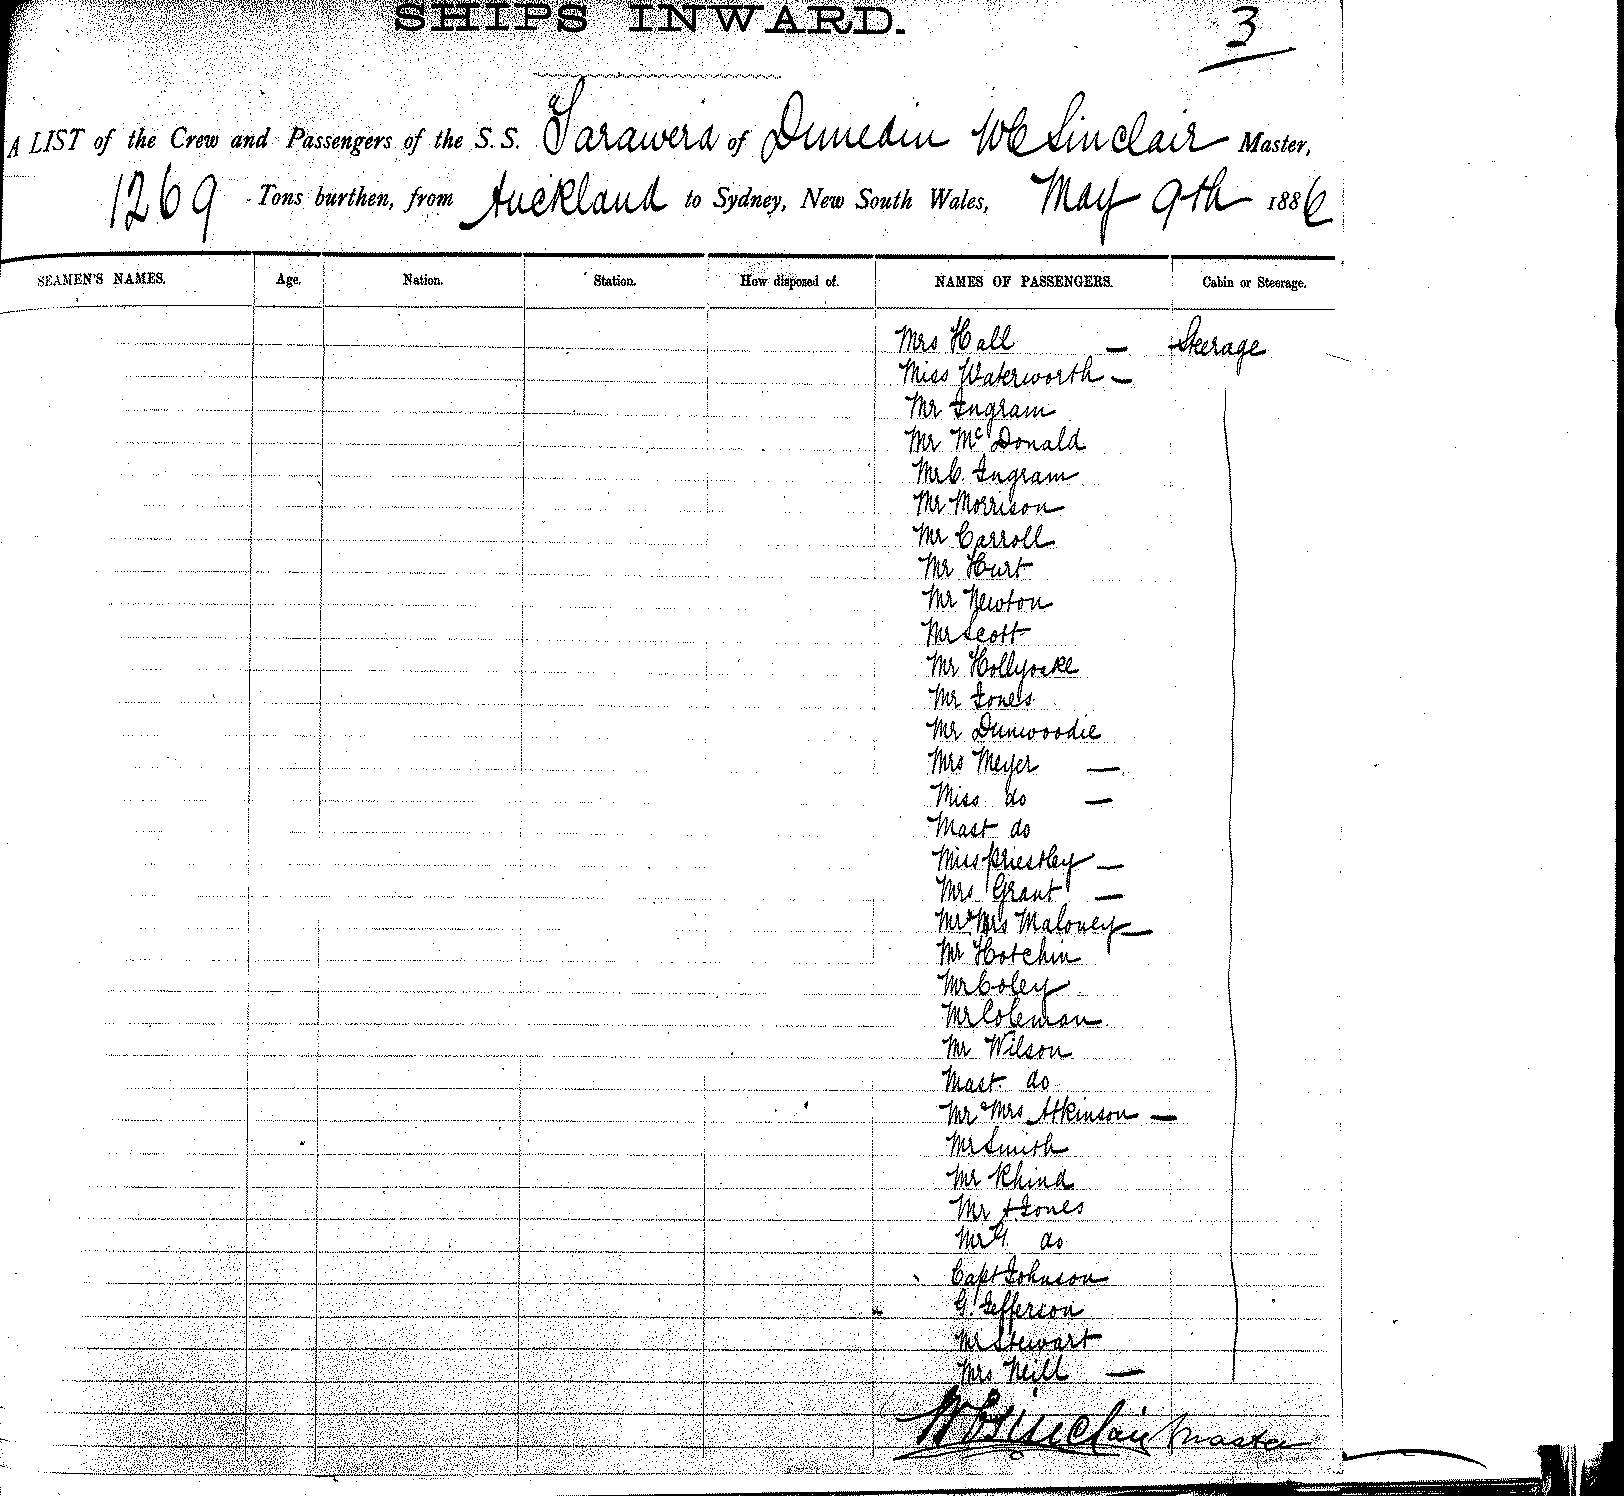 SHIPS INWARD.
3
A LIST of the Crew and Passengers of the S.S. Tarawera of Dunedin WC Sinclair Master,
1269 Tons burthen, from Auckland to Sydney, New South Wales, May 9th 1886
SEAMEN'S NAMES. Age. Nation. Station. How disposed of. NAMES OF PASSENGERS. Cabin or Steerage.
Mrs Hall — Steerage
Miss Waterworth —
Mr Ingram
Mr McDonald
Mr C. Ingram
Mr Morrison
Mr Carroll
Mr Hurt
Mr Newton
Mr Scott
Mr Hollyoake
Mr Jones
Mr Dunwoodie
Mrs Meyer —
Miss do —
Mast do
Miss Priestley —
Mrs Grant —
Mr & Mrs Maloney —
Mr Hotchin
Mr Coley
Mr Coleman
Mr Wilson
Mast do
Mr & Mrs Atkinson —
Mr Smith
Mr Rhind
Mr A Jones
Mr G. do
Capt Johnson
G. Jefferson
Mr Stewart
Mrs Neill —
WC Sinclair master